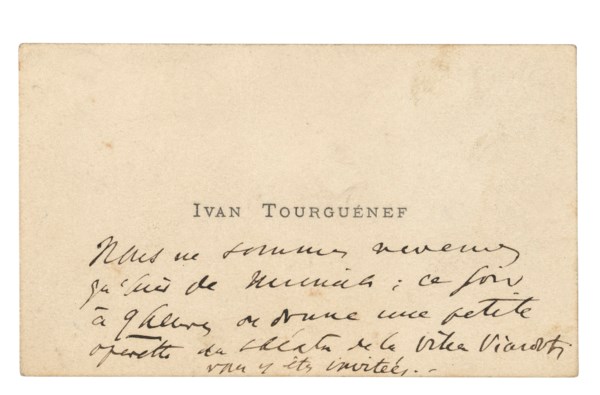 IVAN TOURGUÉNEF
Nous ne sommes revenus
qu'hier de Munich ; ce soir
à 9 heures on donne une petite
opérette au théâtre de la villa Viardot ;
vous y êtes invitées. –